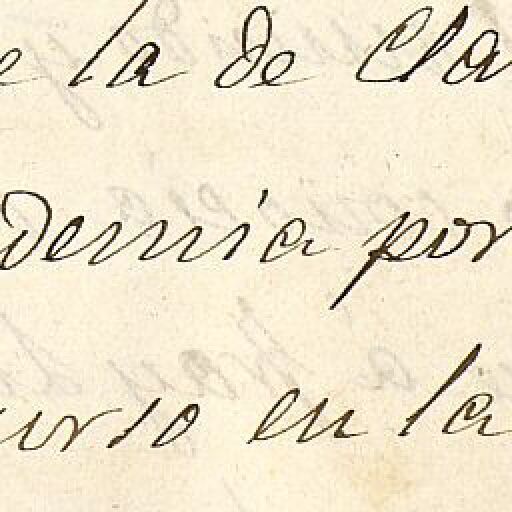 e la de Cla
demia por
urso en la